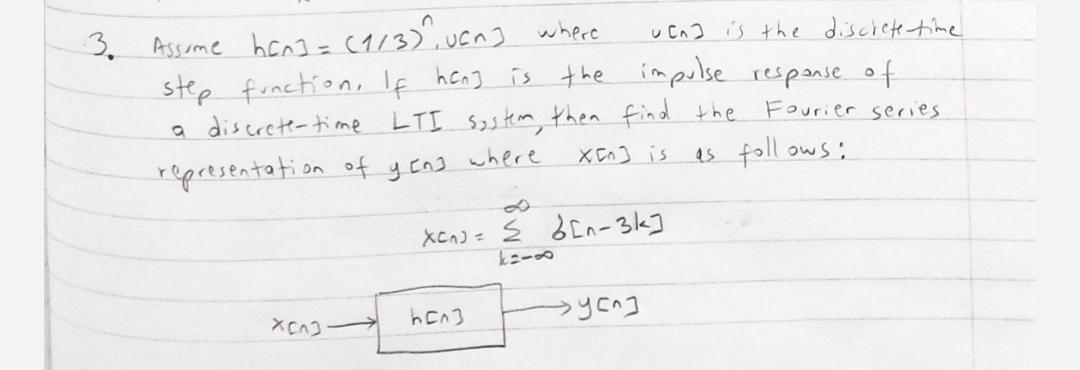 3. Assume h[n] = (1/3)^n . u[n] where u[n] is the discrete-time
step function. If h[n] is the impulse response of
a discrete-time LTI system, then find the Fourier series
representation of y[n] where x[n] is as follows:
x[n] = ∞ Σ k=-∞ δ[n-3k]
x[n] → h[n] → y[n]